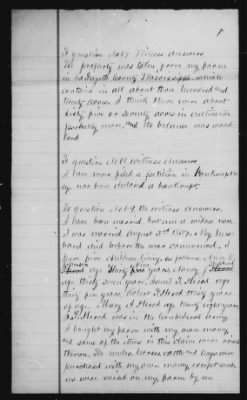 To question No 7 witness answers
The property was taken from my farm
in Lafayette County Mississippi which
contains in all about three hundred and
twenty acres. I think there were about
sixty five or seventy acres in cultivation
probably more, and the balance was wood-
land
To question No 8 witness answers
I have never filed a petition in Bankruptcy
nor been declared a bankrupt.
To question No 9 the witness answers
I have been married but am a widow now
I was married August 3rd My hus-
band died before the war commenced, I
have five children living, as follows
age thirty five years, Nancy J
age thirty seven years, Samuel T. Hood age
thirty five years, Hood thirty years
of age. Mary A Hood age twenty eight years
Hood was in the Confederate army
I bought my farm with my own money,
and some of the items in this claim were raised
thereon. The mules, horses, cattle and wagon were
purchased with my own money, except such
as were raised on my farm by me